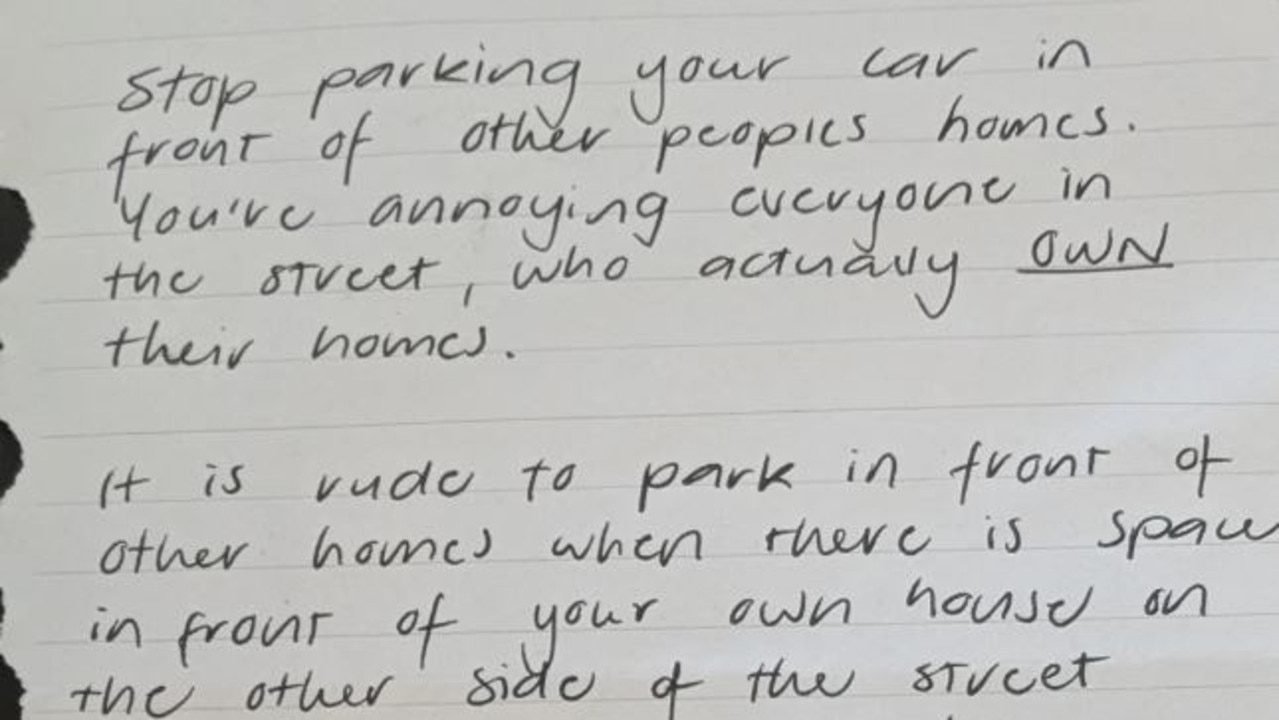 Stop parking your car in
front of other peoples homes.
You're annoying everyone in
the street, who actually OWN
their homes.
It is rude to park in front of
other homes when there is space
in front of your own house on
the other side of the street